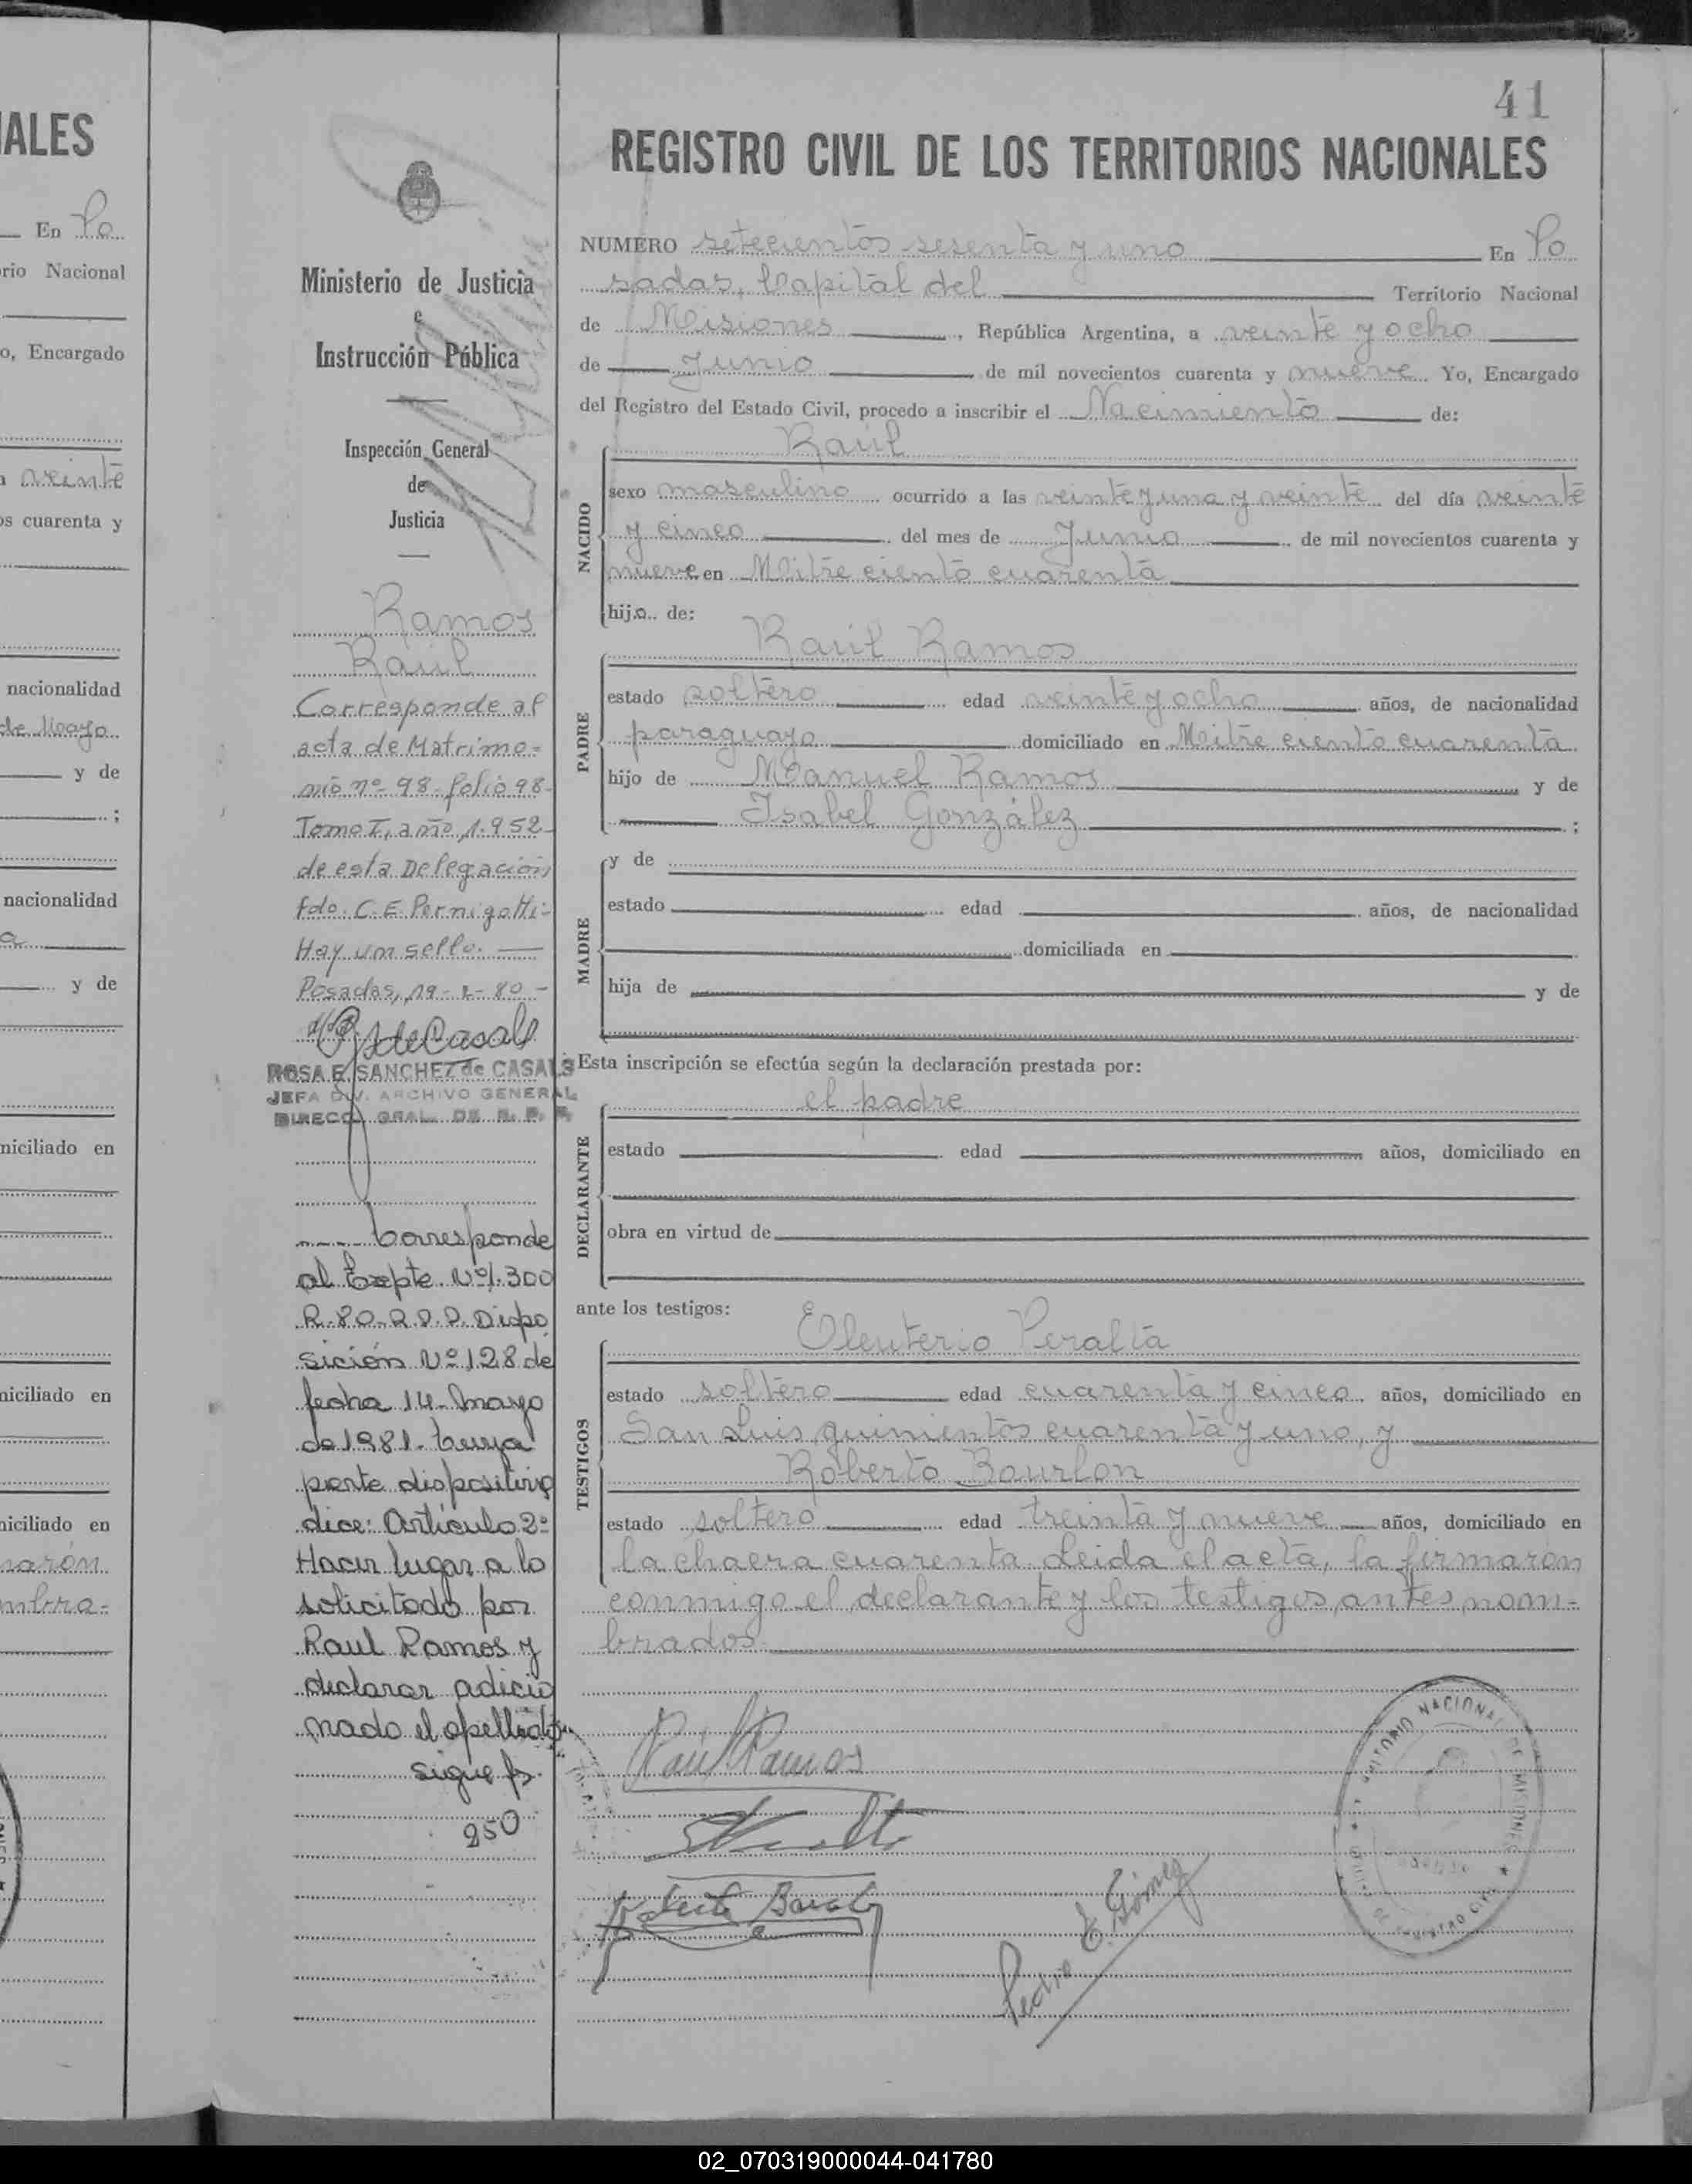 41
REGISTRO CIVIL DE LOS TERRITORIOS NACIONALES
NUMERO setecientos sesenta y uno En Po
sadas, Capital del Territorio Nacional
de Misiones, República Argentina, a veinte y ocho
de Junio de mil novecientos cuarenta y nueve Yo, Encargado
del Registro del Estado Civil, procedo a inscribir el Nacimiento de:
NACIDO
Raúl
sexo masculino ocurrido a las veinte y una y veinte del día veinte
y cinco del mes de Junio de mil novecientos cuarenta y
nueve en Mitre ciento cuarenta
hijo de:
PADRE
Raúl Ramos
estado soltero edad veinte y ocho años, de nacionalidad
paraguayo domiciliado en Mitre ciento cuarenta
hijo de Manuel Ramos y de
Isabel González ;
MADRE
y de
estado edad años, de nacionalidad
domiciliada en
hija de y de
Esta inscripción se efectúa según la declaración prestada por:
DECLARANTE
el padre
estado edad años, domiciliado en
obra en virtud de
ante los testigos:
TESTIGOS
Eleuterio Peralta
estado soltero edad cuarenta y cinco años, domiciliado en
San Luis quinientos cuarenta y uno, y
Roberto Bourlon
estado soltero edad treinta y nueve años, domiciliado en
la chacra cuarenta. Leida el acta, la firmaron
conmigo el declarante y los testigos antes nom-
brados.
Raúl Ramos
Pedro E. Gómez
TERRITORIO NACIONAL DE MISIONES
Ministerio de Justicia
e
Instrucción Pública
Inspección General
de
Justicia
Ramos
Raúl
Corresponde al
acta de Matrimo-
nio nº 98 - folio 98-
Tomo I, año 1.952-
de esta Delegación
fdo. C.E. Pernigotti-
Hay un sello.
Posadas, 19-2-80-
ROSA E. SANCHEZ de CASALS
JEFA DIV. ARCHIVO GENERAL
DIRECC. GRAL. DE R. P. P.
---- Corresponde
al Expte. Nº 1.300
R-80-R.P.P. Dispo
sición Nº 128 de
fecha 14-mayo
de 1981. Cuya
parte dispositiva
dice: Artículo 2º
Hacer lugar a lo
solicitado por
Raul Ramos y
declarar adicio
nado el apellido
sigue fs.
250
IALES
En Po
rio Nacional
o, Encargado
veinte
os cuarenta y
nacionalidad
de Mayo
y de
;
nacionalidad
a
y de
niciliado en
niciliado en
niciliado en
marón
mbra-
02_070319000044-041780